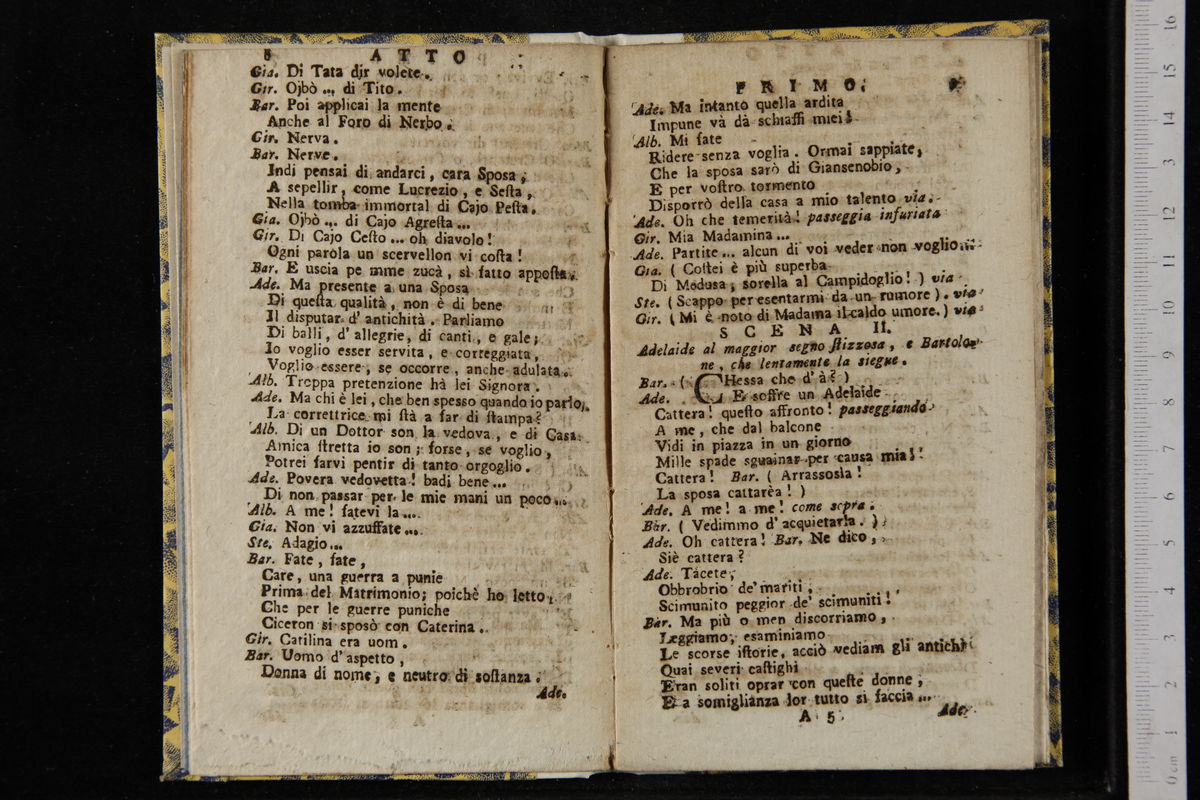 8 ATTO
Gia. Di Tata dir volete.
Gir. Ojbò ... di Tito.
Bar. Poi applicai la mente
Anche al Foro di Nerbo.
Gir. Nerva.
Bar. Nerve.
Indi pensai di andarci, cara Sposa,
A sepellir, come Lucrezio, e Sesta,
Nella tomba immortal di Cajo Pesta.
Gia. Ojbò ... di Cajo Agresta ...
Gir. Di Cajo Cesto ... oh diavolo!
Ogni parola un scervellon vi costa!
Bar. E uscia pe mme zucà, sì fatto apposta.
Ade. Ma presente a una Sposa
Di questa qualità, non è di bene
Il disputar d'antichità. Parliamo
Di balli, d'allegrie, di canti, e gale;
Io voglio esser servita, e correggiata,
Voglio essere, se occorre, anche adulata.
Alb. Troppa pretenzione hà lei Signora.
Ade. Ma chi è lei, che ben spesso quando io parlo,
La correttrice mi stà a far di stampa?
Alb. Di un Dottor son la vedova, e di Casa
Amica stretta io son; forse, se voglio,
Potrei farvi pentir di tanto orgoglio.
Ade. Povera vedovetta! badi bene ...
Di non passar per le mie mani un poco ...
Alb. A me! fatevi la ...
Gia. Non vi azzuffate ...
Ste. Adagio ...
Bar. Fate, fate,
Care, una guerra a punie
Prima del Matrimonio; poichè ho letto,
Che per le guerre puniche
Ciceron si sposò con Caterina.
Gir. Catilina era uom.
Bar. Uomo d'aspetto,
Donna di nome, e neutro di sostanza.
Ade.
PRIMO. 9
Ade. Ma intanto quella ardita
Impune và dà schiaffi miei!
Alb. Mi fate
Ridere senza voglia. Ormai sappiate,
Che la sposa sarò di Giansenobio,
E per vostro tormento
Disporrò della casa a mio talento via.
Ade. Oh che temerità! passeggia infuriata
Gir. Mia Madamina ...
Ade. Partite ... alcun di voi veder non voglio ...
Gia. (Costei è più superba
Di Medusa, sorella al Campidoglio!) via
Ste. (Scappo per esentarmi da un rumore). via
Gir. (Mi è noto di Madama il caldo umore.) via
SCENA II.
Adelaide al maggior segno stizzosa, e Bartolo-
ne, che lentamente la siegue.
Bar. (CHessa che d'à?)
Ade. E soffre un Adelaide
Cattera! questo affronto! passeggiando
A me, che dal balcone
Vidi in piazza in un giorno
Mille spade sguainar per causa mia!
Cattera! Bar. (Arrassosia!
La sposa cattarèa!)
Ade. A me! a me! come sopra.
Bar. (Vedimmo d'acquietarla.)
Ade. Oh cattera! Bar. Ne dico,
Siè cattera?
Ade. Tacete,
Obbrobrio de' mariti,
Scimunito peggior de' scimuniti!
Bar. Ma più o men discorriamo,
Leggiamo, esaminiamo
Le scorse istorie, acciò vediam gli antichi
Quai severi castighi
Eran soliti oprar con queste donne,
E a somiglianza lor tutto si faccia ...
A 5 Ade.